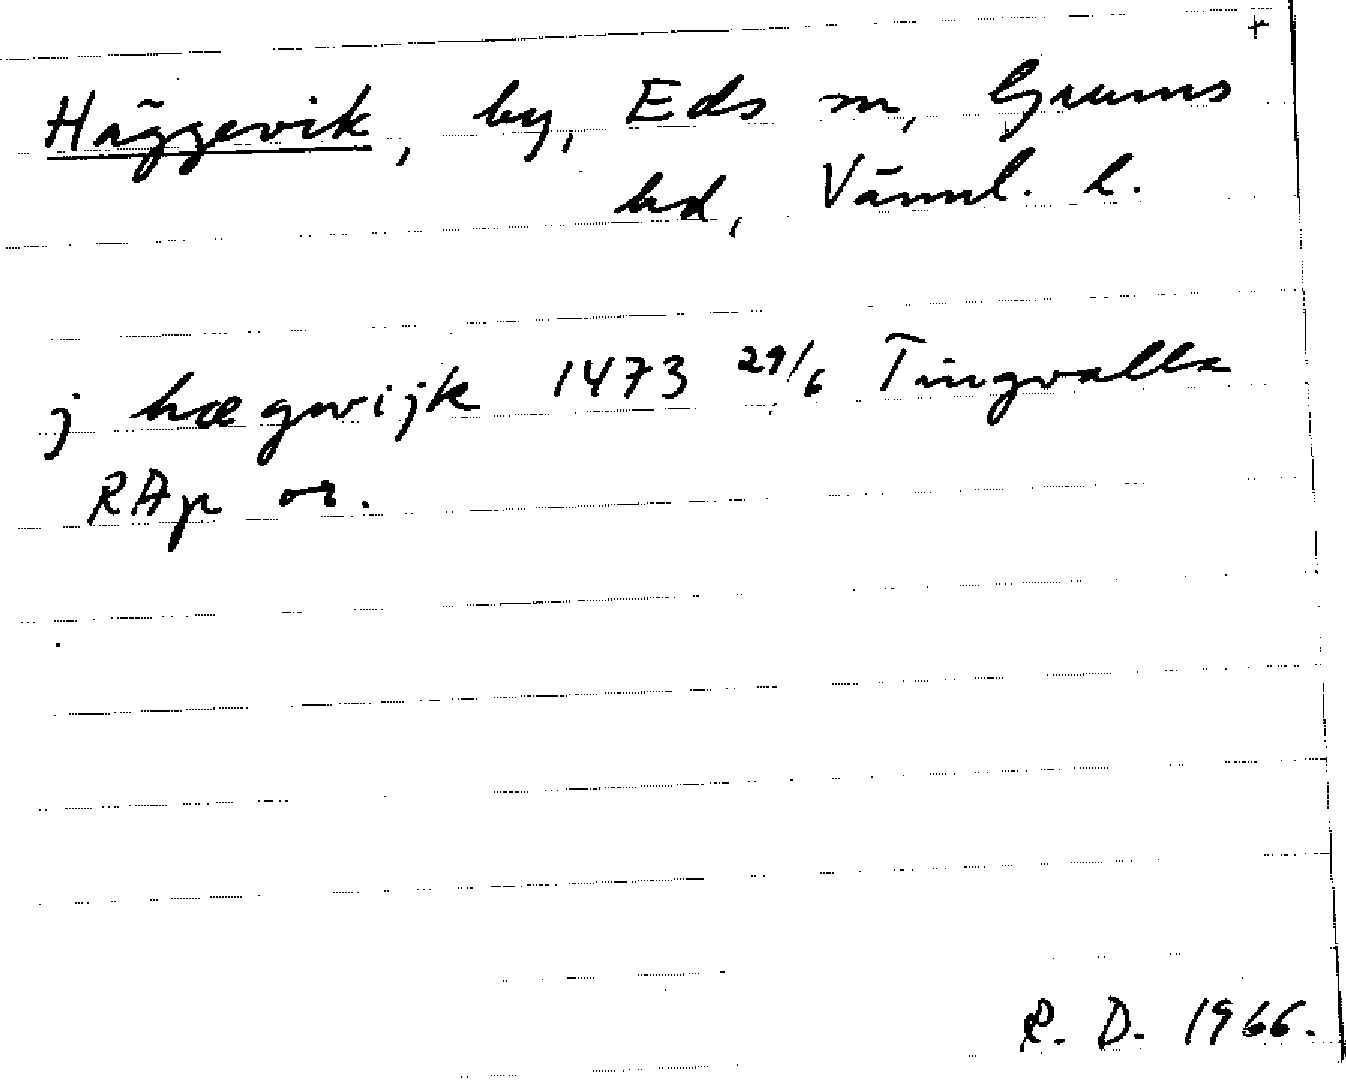 +
Häggevik, by, Eds sn, Grums
hd, Värml. l.
j hægwijk 1473 29/6 Tingvalla
RAp or.
R. D. 1966.